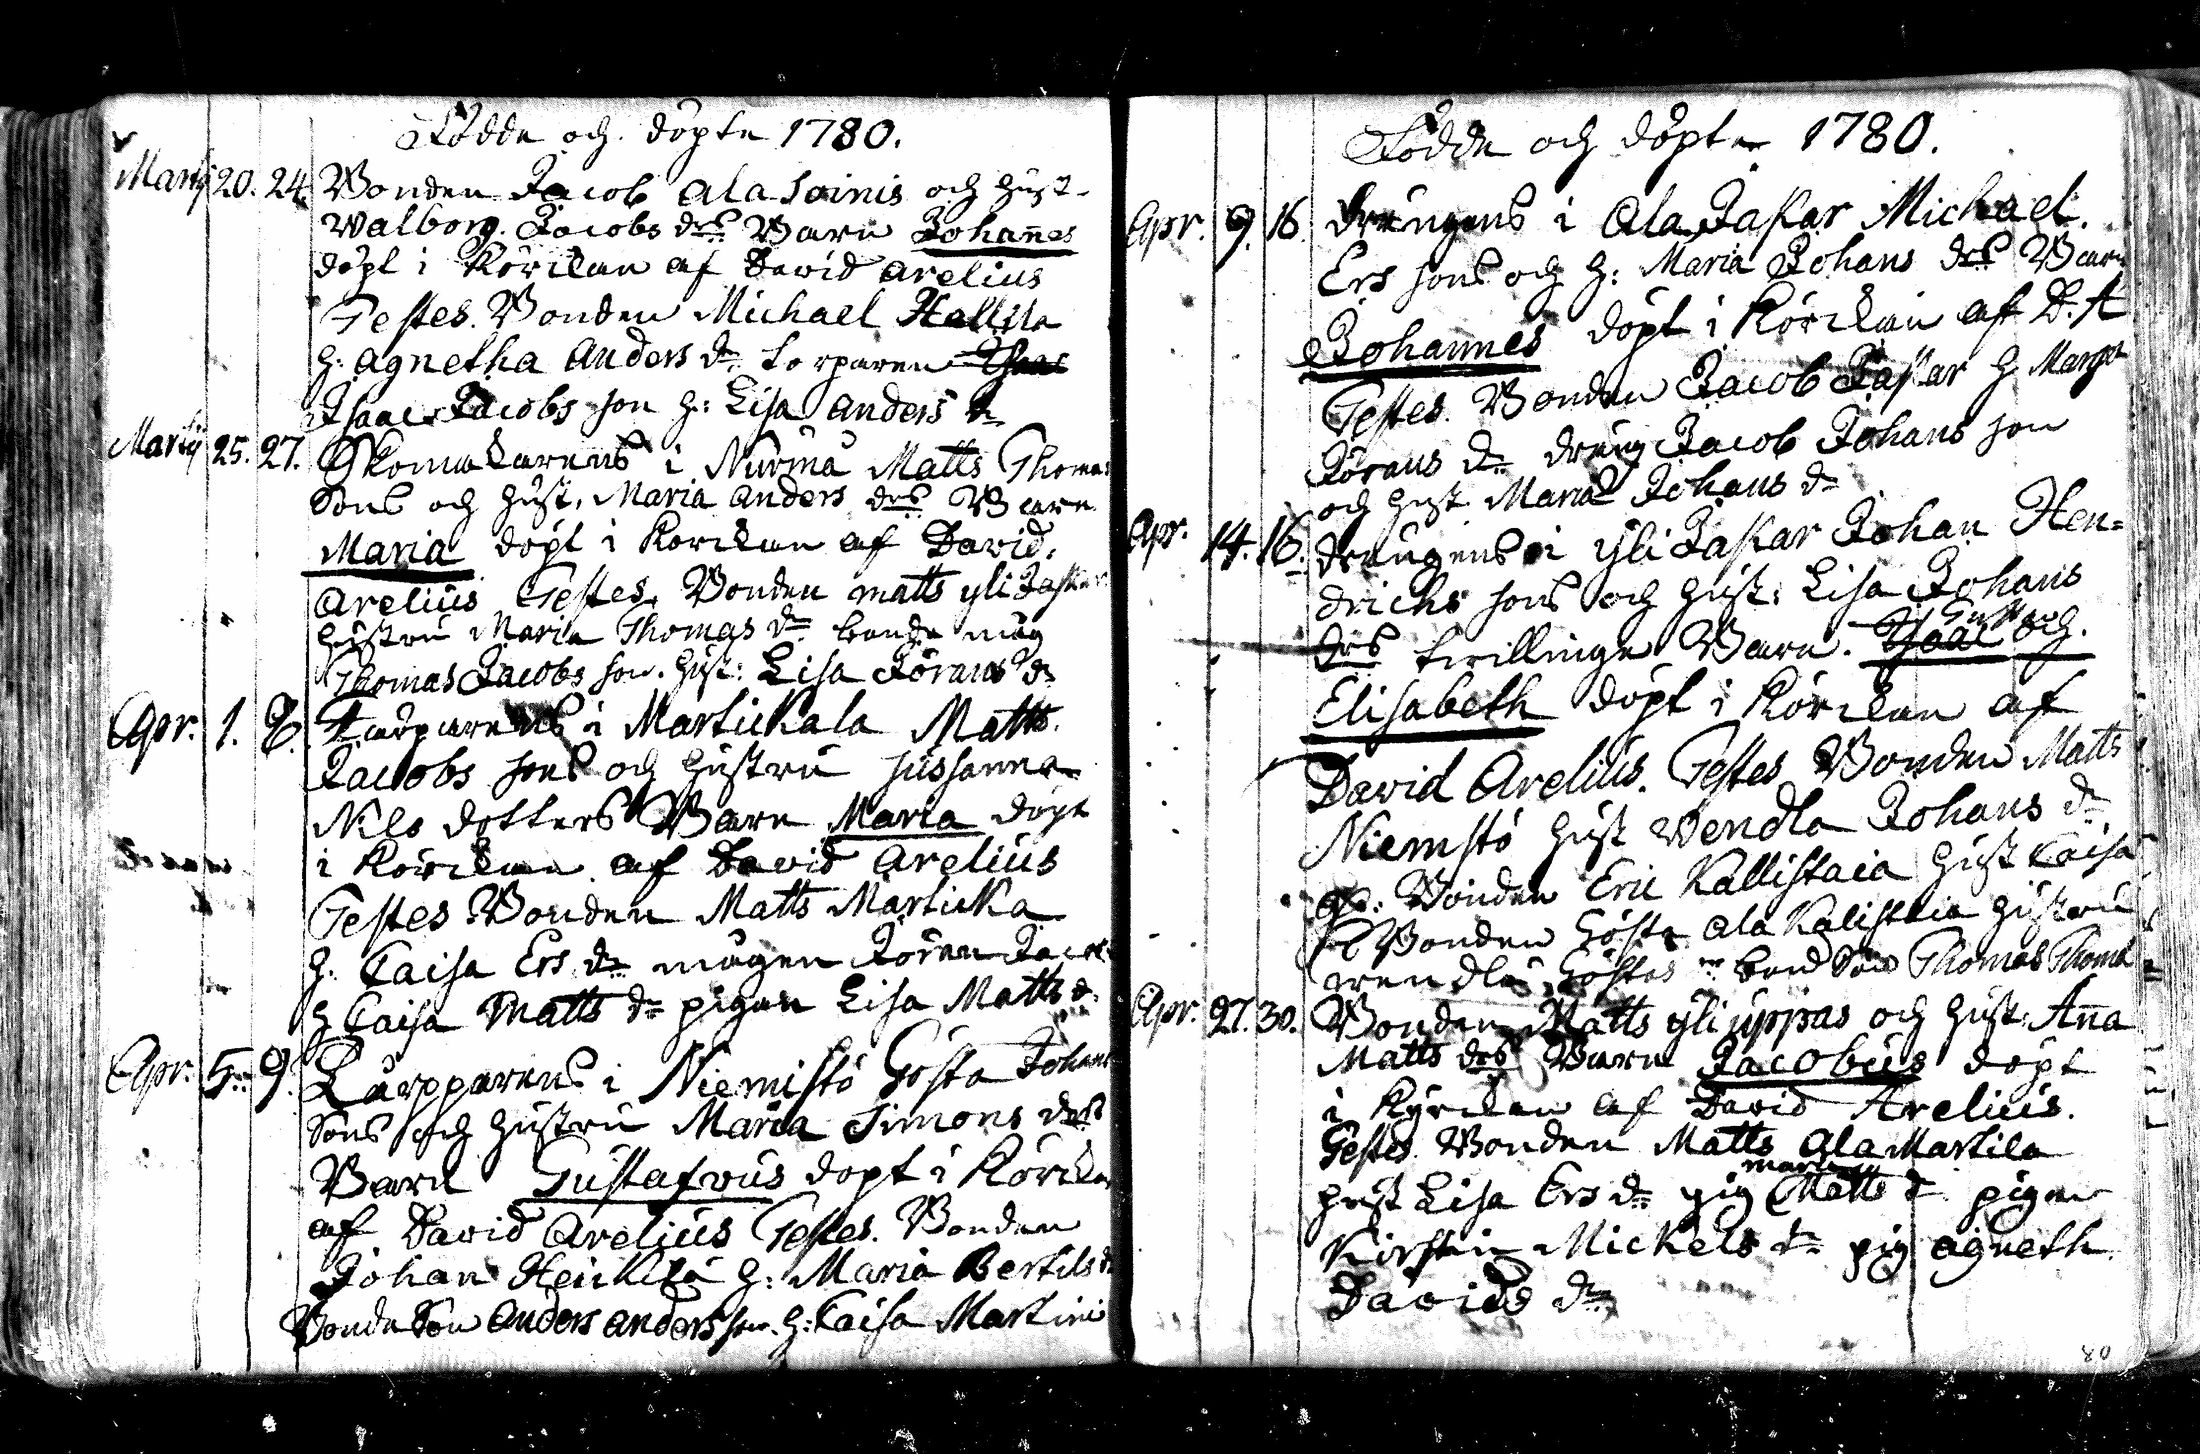 Födde och döpte 1780.
Martij 20. 24. Bonden Jacob Ala Soinis och hust.
Walborg Jacobs drs Barn Johannes
döpt i Körckan af David Arelius
Testes. Bonden Michael Hallila
h. Agnetha Anders dr torparen Isaac
Isaac Jacobs son h: Lisa Anders dr
Martij 25. 27. Skomakarens i Nurma Matts Thomas
Sons och hust. Maria Anders drs Barn
Maria döpt i Körckan af David.
Arelius Testes. Bonden Matts yli Jaskar
hustru Maria Thomas dr bonde måg
Thomas Jacobs son. hust: Lisa Jörans dr
Apr. 1. 2. Torparens i Martickala Matts
Jacobs sons och hustru Sussanna
Nils dotters Barn Maria döpt
i Körckan af David Arelius
Testes Bonden Matts Marticka
h. Caisa Ers dr mågen Jören Jacobs
h Caisa Matts dr pigan Lisa Matts d.
Apr. 5. 9. Torpparens i Niemistö Gösta Johans
Sons och hustru Maria Simons drs
Barn Gustafvus döpt i Körckan
af David Arelius Testes. Bonden
Johan Heickilä h: Maria Bertils d
Bonde Son Anders Anders son. h: Caisa Martini
Födde och döpte 1780.
Apr. 9. 16. drängens i Ala Jaskar Michael
Ers sons och h: Maria Johans drs Barn
Johannes döpt i Körckan af D. A
Testes. Bonden Jacob Jaskar h Margeta
Jörans dr dräng Jacob Johans son
och hust Maria Johans d
Apr. 14. 16. drängens i yli Jaskar Johan Hen=
drichs sons och hust: Lisa Johans
drs tvillinge Barn. Isaac Gust och
Elisabeth döpt i Körckan af
David Arelius. Testes Bonden Matts
Niemstö hust Wendla Johans d
Bonden Eric Kallistaia hust Caisa
Bonden Gösta ala Kalistaia hustru
wendla Göstas bond Son Thomas Thoms
Apr. 27. 30. Bonden Matts yli uppas och hust: Anna
Matts drs Barn Jacobus döpt
i Kyrckan af David Arelius.
Testes. Bonden Matts Ala Martila
hust Lisa Ers dr pig Maria Matts d pigan
Kirstin Mickels dr pig agneth
Davids dr
80